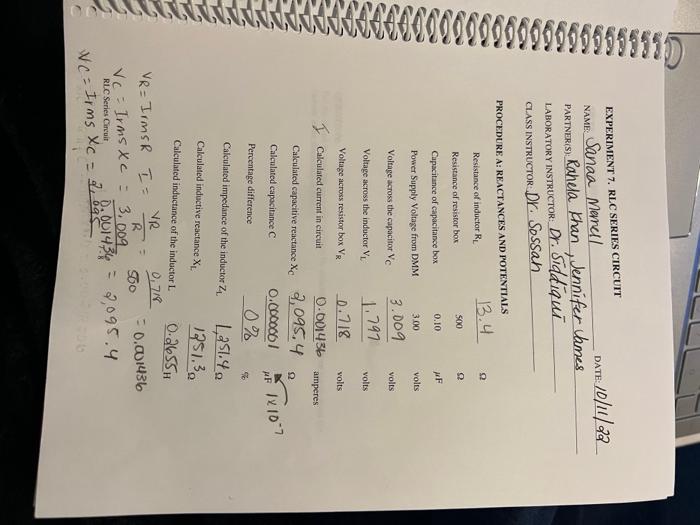 EXPERIMENT 7. RLC SERIES CIRCUIT
NAME: Sanaa Marell DATE: 10/11/22
PARTNER(S): Rahela Khan, Jennifer James
LABORATORY INSTRUCTOR: Dr. Siddiqui
CLASS INSTRUCTOR: Dr. Sossah
PROCEDURE A: REACTANCES AND POTENTIALS
Resistance of inductor RL 13.4 Ω
Resistance of resistor box 500 Ω
Capacitance of capacitance box 0.10 μF
Power Supply Voltage from DMM 3.00 volts
Voltage across the capacitor VC 3.009 volts
Voltage across the inductor VL 1.797 volts
Voltage across resistor box VR 0.718 volts
I Calculated current in circuit 0.001436 amperes
Calculated capacitive reactance XC 2,095.4 Ω
Calculated capacitance C 0.0000001 μF 1x10⁻⁷
Percentage difference 0% %
Calculated impedance of the inductor ZL 1,251.4 Ω
Calculated inductive reactance XL 1251.3 Ω
Calculated inductance of the inductor L 0.2655 H
VR = Irms R I = VR/R = 0.718/500 = 0.001436
VC = Irms XC = 3.009/0.001436 = 2,095.4
RLC Series Circuit
VC = Irms XC =